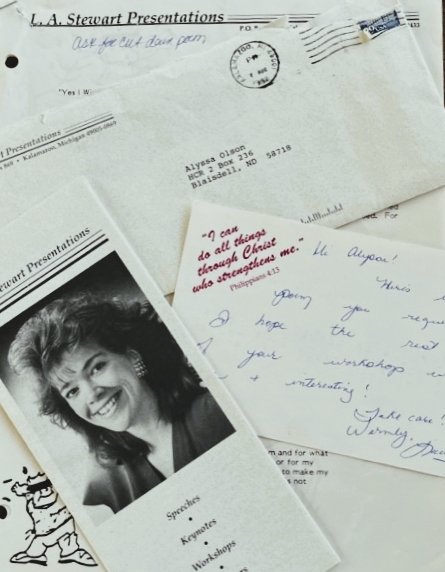 L. A. Stewart Presentations
P.O.
Ask for cut down
"Yes I W
KALAMAZOO, MI
PM
Presentations
Kalamazoo, Michigan 49005-0869
Alyssa Olson
HCR 2 Box 236
Blaisdell, ND 58718
ed. For
"I can
do all things
through Christ
who strengthens me."
Philippians 4:13
Hi Alyssa!
Here's
you requ
I hope the rest
your workshops w
+ interesting!
Take care!
Warmly,
m and for what
or for my
to make my
s not
Stewart Presentations
Speeches
•
Keynotes
•
Workshops